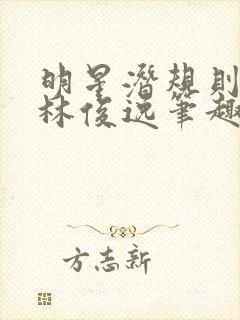 明星潜规则
林俊逸笔趣
方志新